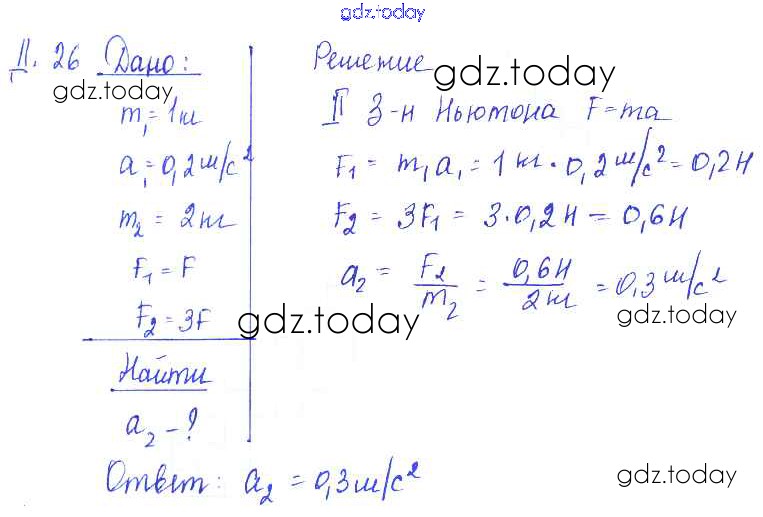 gdz.today
Д. 26 Дано:
gdz.today
m₁ = 1 кг
a₁ = 0,2 м/с²
m₂ = 2 кг
F₁ = F
F₂ = 3F
gdz.today
Найти
a₂ – ?
Решение
gdz.today
II З-н Ньютона F = ma
F₁ = m₁a₁ = 1 кг · 0,2 м/с² = 0,2 Н
F₂ = 3F₁ = 3 · 0,2 Н = 0,6 Н
a₂ = F₂/m₂ = 0,6 Н/2 кг = 0,3 м/с²
gdz.today
Ответ: a₂ = 0,3 м/с²
gdz.today